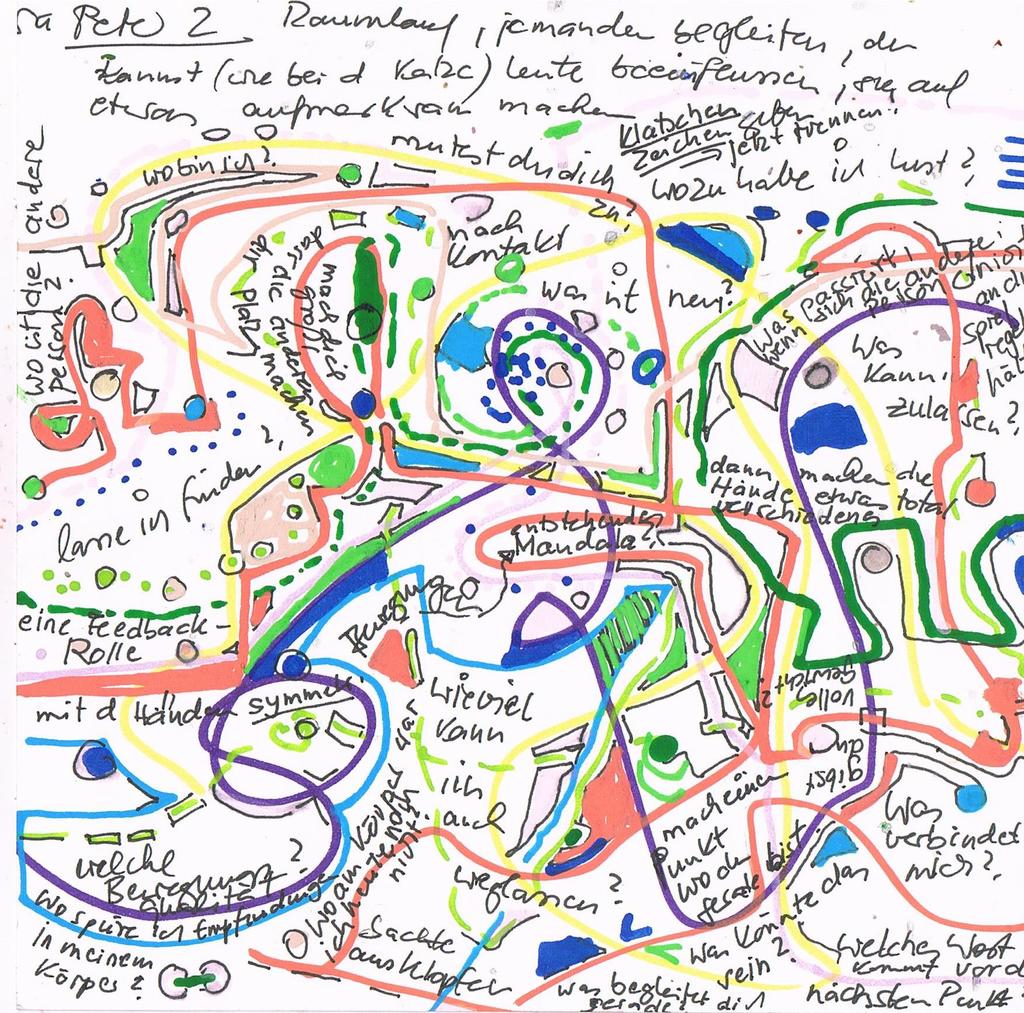 Pete 2 Raumlauf, jemanden begleiten, du
kannst (wie bei d Katze) Leute beeinflussen, sie auf
etwas aufmerksam machen
Klatschen
Zeichen geben
→ jetzt trennen!
mutest du dich
zu?
wozu habe ich lust?
wo bin ich?
wo ist die andere
Person?
nach
Kontakt
was ist neu?
mach dich
groß
dass die anderen
dir Platz machen
was passiert,
wenn sich die andere
Person
Was
kann
zulassen?
dann machen die
Hände etwas total
verschiedenes
lasse ich finden
?
entstehendes
Mandala?
eine Feedback-
Rolle
Bewegung
mit d Händen symmetr.
wieviel
kann
ich
auch
weglassen?
volles
Gewicht?
gibst
du
mach einen
Punkt
wo du
gerade bist
Was
verbindet
mich?
welche
Bewegungs
qualität?
wo spüre ich Empfindungen
in meinem
Körper?
war
Körper
wo am
ich
noch
nicht?
Sachte
ausklopfen
was könnte das
sein?
was begleitet
gerade dich
welches Wort
kommt vor d
nächsten Punkt